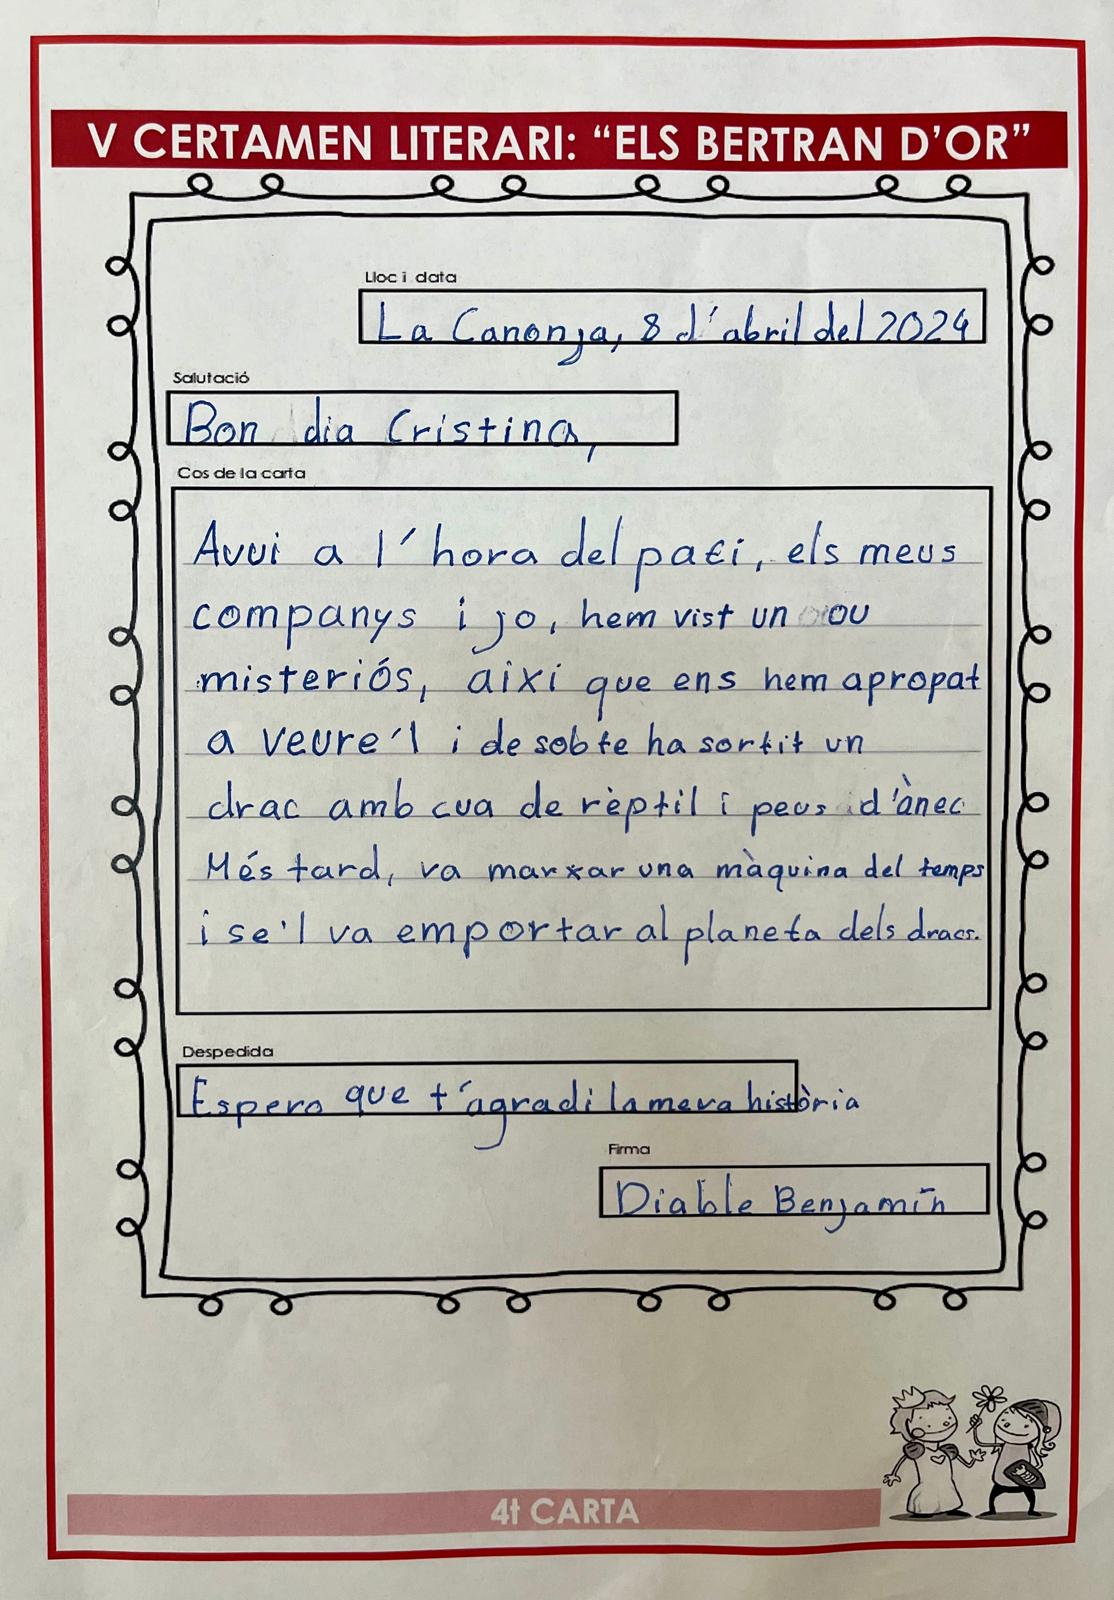 V CERTAMEN LITERARI: “ELS BERTRAN D’OR”
Lloc i data
La Canonja, 8 d'abril del 2024
Salutació
Bon dia Cristina,
Cos de la carta
Avui a l'hora del pati, els meus
companys i jo, hem vist un ou
misteriós, així que ens hem apropat
a veure'l i de sobte ha sortit un
drac amb cua de rèptil i peus d'ànec
Més tard, va marxar una màquina del temps
i se'l va emportar al planeta dels dracs.
Despedida
Espero que t'agradi la meva història
Firma
Diable Benjamín
4t CARTA